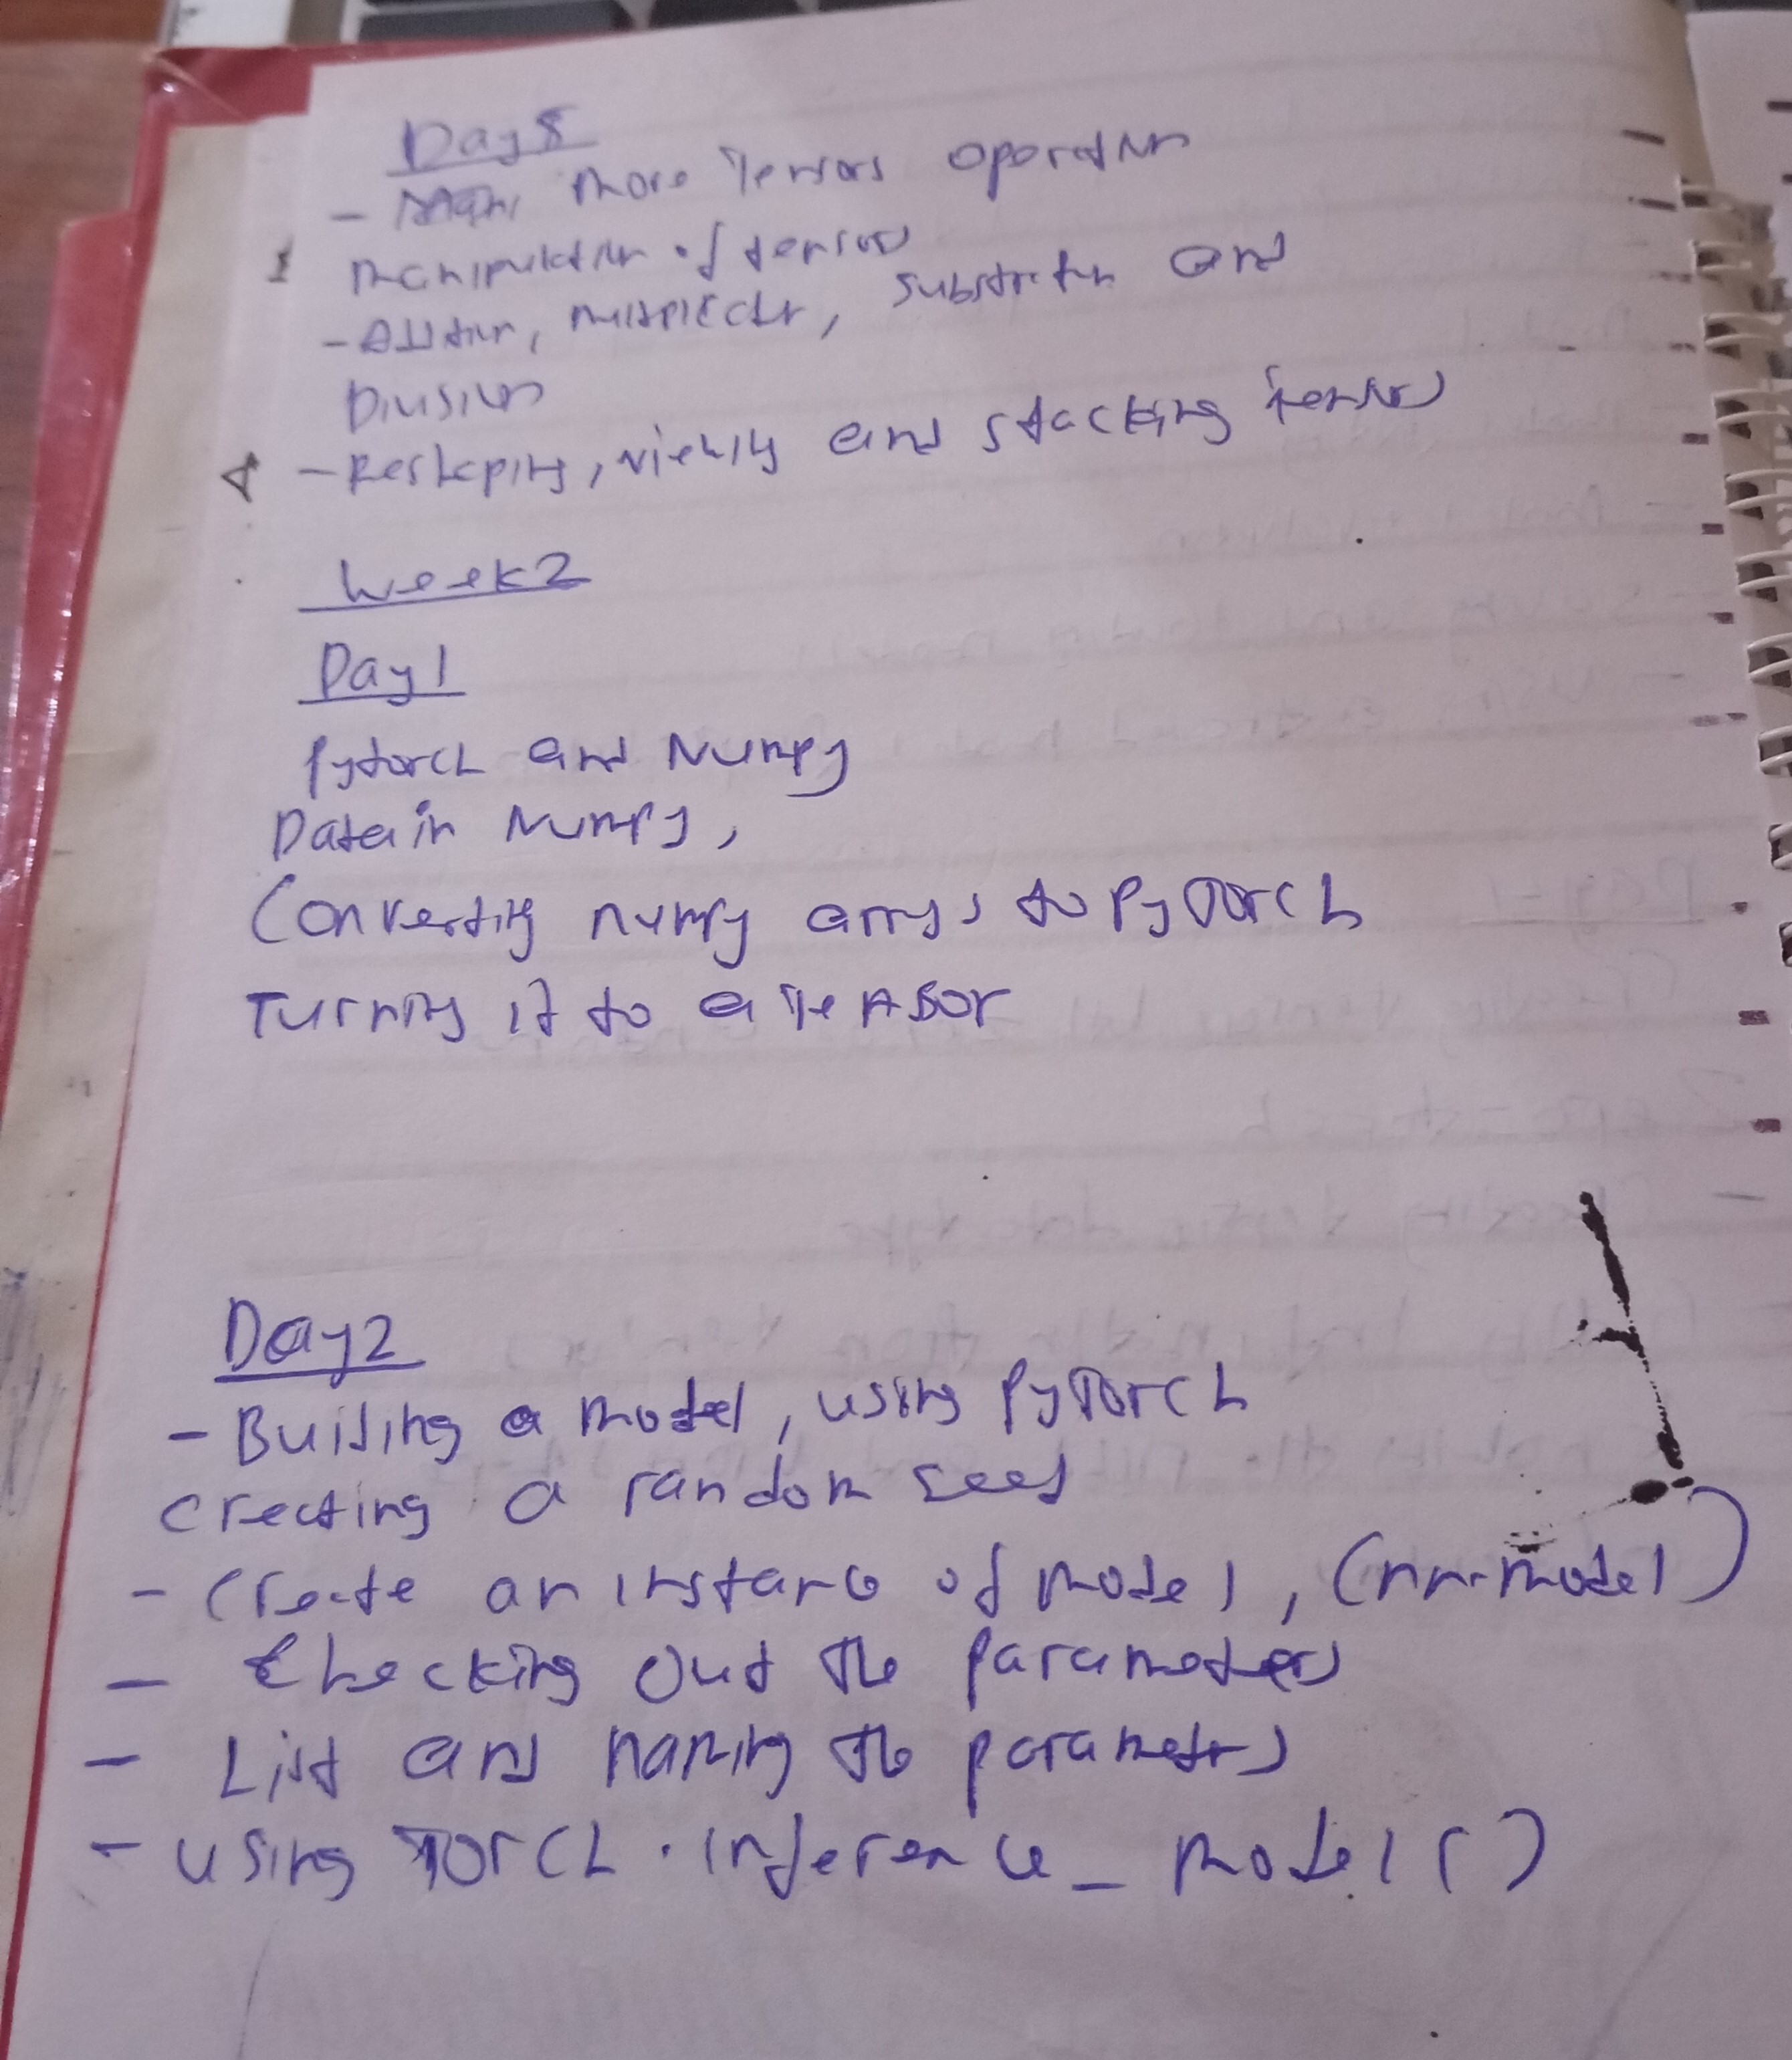 Day 5
- more Tensors operation
manipulation of tensors
- Addition, multiplication, substration and
Division
- Reshaping, viewing and stacking tensors
Week 2
Day 1
Pytorch and Numpy
Data in Numpy,
Converting numpy arrays to PyTorch
Turning it to a Tensor
Day 2
- Building a model, using PyTorch
creating a random seed
- Create an instance of model, (nn.model)
- Checking out the parameters
- List and naming the parameters
- using Torch.inference_model()